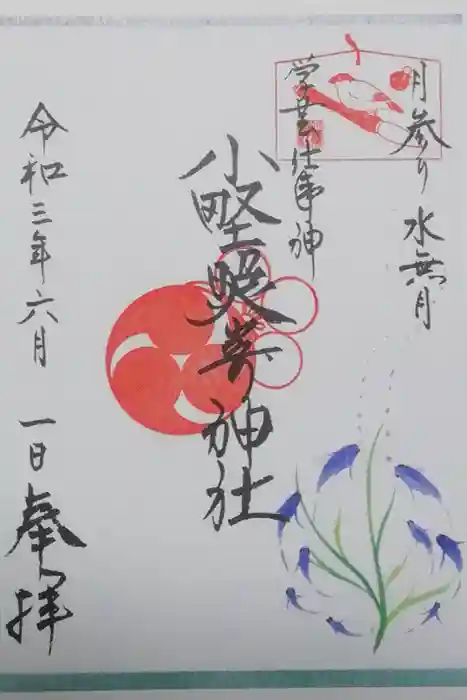 月参り 水無月
学芸仕事神
小野照崎神社
令和三年六月一日
奉拝